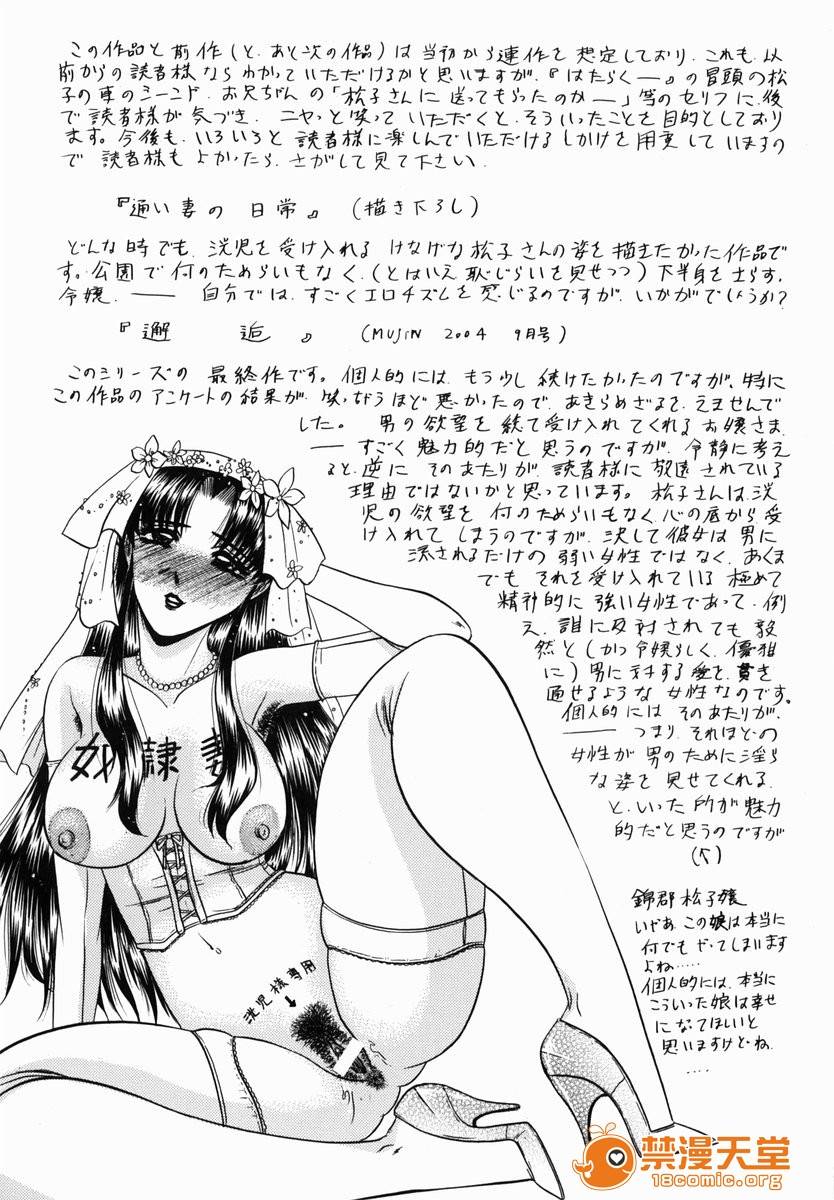 この作品と前作(と、あと次の作品)は当初から連作を想定しており、これも、以
前からの読者様ならわかっていただけるかと思いますが、『はたらく―』の冒頭の松
子の車のシーンや、お兄ちゃんの「松子さんに送ってもらったのか―」等のセリフに、後
で読者様が気づき、ニヤッと笑っていただくと、そういったことを目的としており
ます。今後も、いろいろと読者様に楽しんでいただけるしかけを用意していますの
で読者様もよかったら、さがして見て下さい。
『通い妻の日常』 (描き下ろし)
どんな時でも、洸児を受け入れるけなげな松子さんの姿を描きたかった作品で
す。公園で何のためらいもなく、(とはいえ恥じらいを見せつつ)下半身を士らす。
令嬢、―― 自分では、すごくエロチズムを感じるのですが、いかがでしょうか?
『邂 逅』 (MUJIN 2004 9月号)
このシリーズの最終作です。個人的には、もう少し続けたかったのですが、特に
この作品のアンケートの結果が、笑っちゃうほど悪かったので、あきらめざるを、えませんで
した。男の欲望を総て受け入れてくれるお嬢さま、
―― すごく魅力的だと思うのですが、冷静に考え
ると、逆に そのあたりが、読者様に敬遠されている
理由ではないかと思っています。松子さんは、洸
児の欲望を 何のためらいもなく、心の底から受
け入れて しまうのですが、決して彼女は男に
流されるだけの 弱い女性ではなく、あくま
でも それを受け入れている 極めて
精神的に 強い女性であって、例
え、誰に反対されても 毅
然と(しかつ令嬢らしく、優雅
に)男に対する愛を、貫き
通せるような 女性なのです。
個人的には そのあたりが、
―― つまり、それほどの
女性が 男のために淫ら
な姿を 見せてくれる、
と、いった所が魅力
的だと思うのですが
錦郡 松子嬢
いやあ、この娘は本当に
何でもやってしまいます
よね……
個人的には、本当に
こういった娘は幸せ
になってほしいと
思いますけどね、
....
奴隷妻
洸児様専用
禁漫天堂
18comic.org